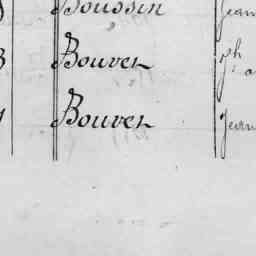 Boussin Jean
Bouvet ph
Bouvet Jean